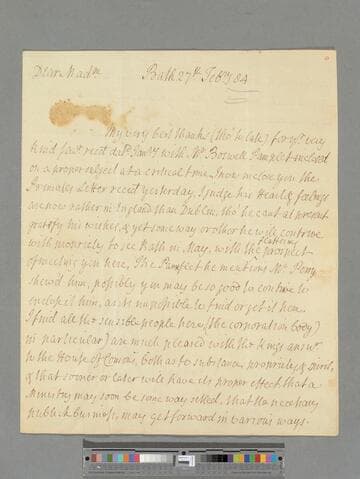 Dear Madm Bath 27th Feby 84
My very best thanks (tho' so late) for yr very
kind favr recd datd Jany with Mr Boswell Pamplet inclosed
on a proper subject at a critical time, I now inclose you the
Primates Letter recd yesterday, I judge his Heart & feelings
are now rather in England than Dublin, tho he cant at present
gratify his wishes, & yet some way or other he will contrive
with propriety to see Bath in May, with the flattering prospect
of meeting you here, The Pamflet he mentions Mr Perry
shew'd him, possibly you may be so good to contrive to
inclose it him, as its impossible to find or get it here.
I find all the sensible people here (the corporation body
in particular) are much pleased with the kings answr
to the House of Comons, both as to substance, propriety, &
& that sooner or later will have its proper effect that a
Ministry may soon be some way setled, that the necessary
publick business, may get forward in various ways.